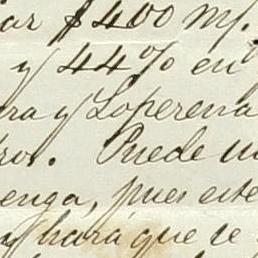 ar $400 m/.
y 44% en
ra y Loperena
ro. Puede u
enga, pues este
y hará que se